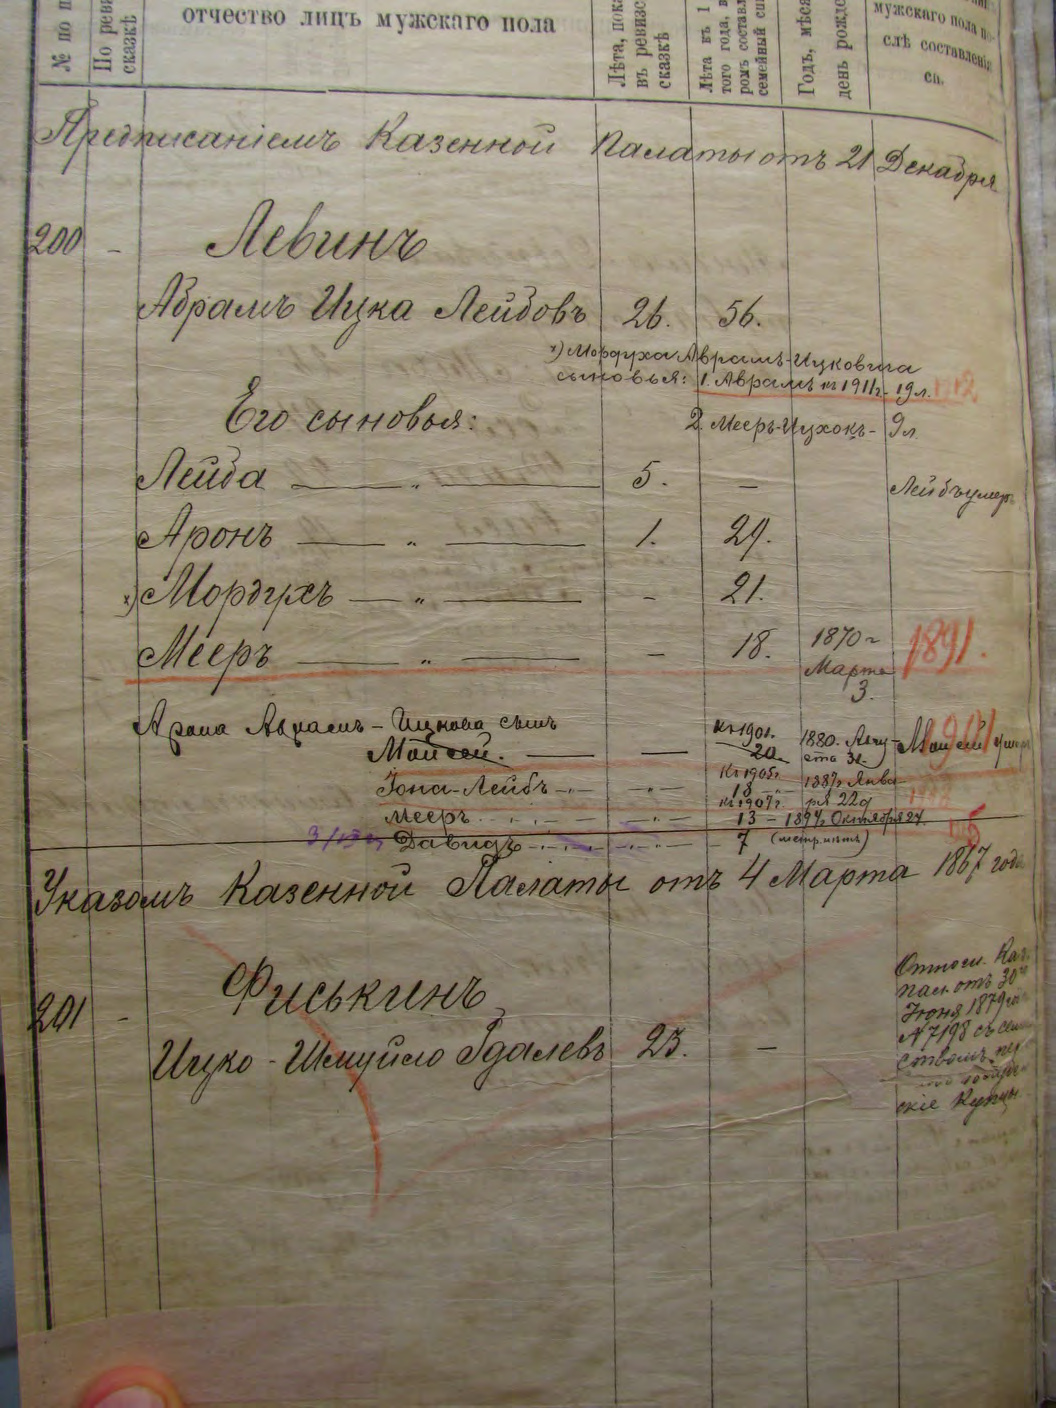 № по п
По реви
сказкѣ
отчество лицъ мужскаго пола
Лѣта, пока
въ ревизс
сказкѣ
Лѣта къ 1
того года, в
ромъ состав
семейный сп
Годъ, мѣся
день рожде
мужскаго пола по-
слѣ составленія
сп.
Предписаніемъ Казенной Палаты отъ 21 Декабря
200 - Левинъ
Абрамъ Ицка Лейбовъ 26. 56.
х) Мордуха Аврамъ-Ицковича
сыновья: 1. Аврамъ къ 1911 г. 19 л. 1912
Его сыновья: 2. Мееръ-Ицхокъ - 9 л
Лейба — „ — 5. — Лейбъ умеръ
Аронъ — „ — 1. 29.
х) Мордухъ — „ — - 21.
Мееръ — „ — — 18. 1870 г 1891.
Марта
3.
Арона Аврамъ-Ицкова сынъ къ 1901. 1880. Авгу- 1901
Мойсей. — — 20. ста 31. Мойсей умер
Іона-Лейбъ къ 1905 г. 18 1887 г Янва
ря 22 д
Мееръ къ 1907 г. 13 - 1894 г. Октября 24.
Давидъ 7 (метр. нѣтъ)
Указомъ Казенной Палаты отъ 4 Марта 1867 года
201 - Фиськинъ
Ицко-Шмуйло Гдалевъ 23. —
Относ. Каз.
пал. отъ 30
Іюня 1879 г.
№ 7198 съ сем
ствомъ
скіе Купцы